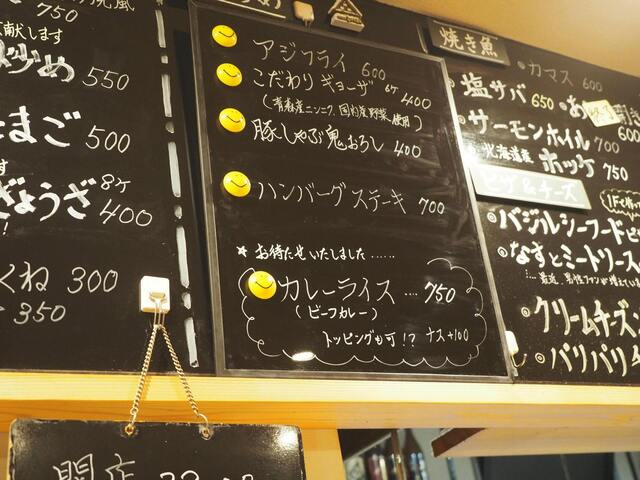 献します
550
たまご 500
ぎょうざ 8ケ 400
くね 300
350
アジフライ 600
こだわりギョーザ 6ケ 400
(青森産ニンニク、国内産野菜使用)
豚しゃぶ鬼おろし 400
ハンバーグステキ 700
★ お待たせいたしました……
カレーライス…. 750
(ビーフカレー)
トッピングも可!? ナス+100
焼き魚
カマス 600
塩サバ 650
600
サーモンホイル 700
北海道産 ホッケ 750
ピザ&チーズ
バジルシーフード
なすとミートソース
クリームチーズ
パリパリ
開店